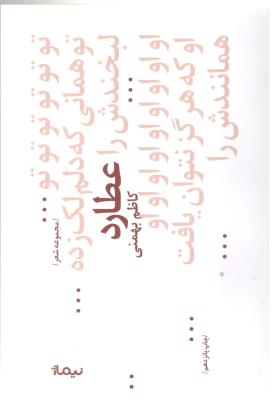 تو تو تو تو تو تو تو ...
/مجموعه شعر/
تو همانی که دلم لک زده ...
لبخندش را ...
عطارد
کاظم بهمنی
او او او او او او او او او
او که هرگز نتوان یافت ...
همانندش را ...
/چاپ پانزدهم/
نیماژ